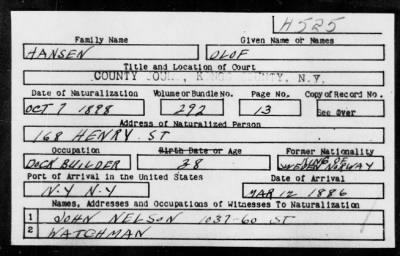 H525
Family Name Given Name or Names
HANSEN OLOF
Title and Location of Court
COUNTY COURT, KINGS COUNTY, N.Y.
Date of Naturalization Volume or Bundle No. Page No. Copy of Record No.
OCT 7 1898 292 13 See Over
Address of Naturalized Person
168 HENRY ST
Occupation Birth Date or Age Former Nationality
DOCK BUILDER 38 KING OF SWEDEN NORWAY
Port of Arrival in the United States Date of Arrival
N.Y N.Y MAR 12 1886
Names, Addresses and Occupations of Witnesses To Naturalization
1 JOHN NELSON 1037-60 ST
2 WATCHMAN